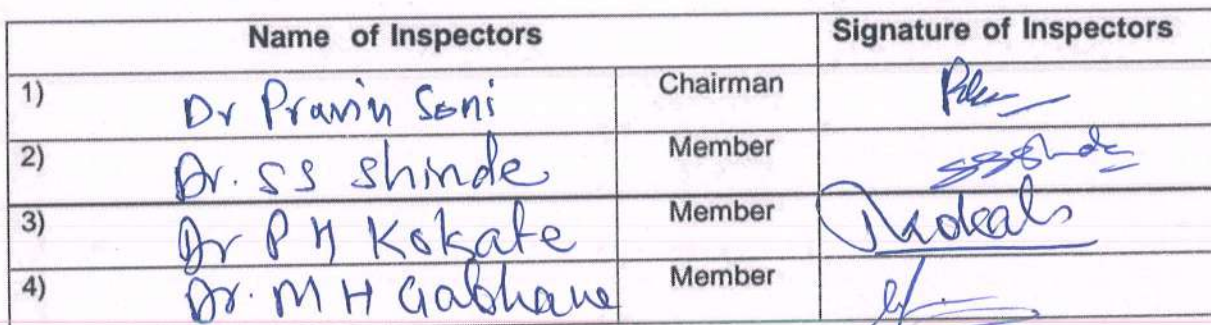 Name of Inspectors Signature of Inspectors
1) Dr Pravin Soni Chairman
2) Dr. SS Shinde Member SSShinde
3) Dr P H Kokate Member
4) Dr. M H Gabhane Member